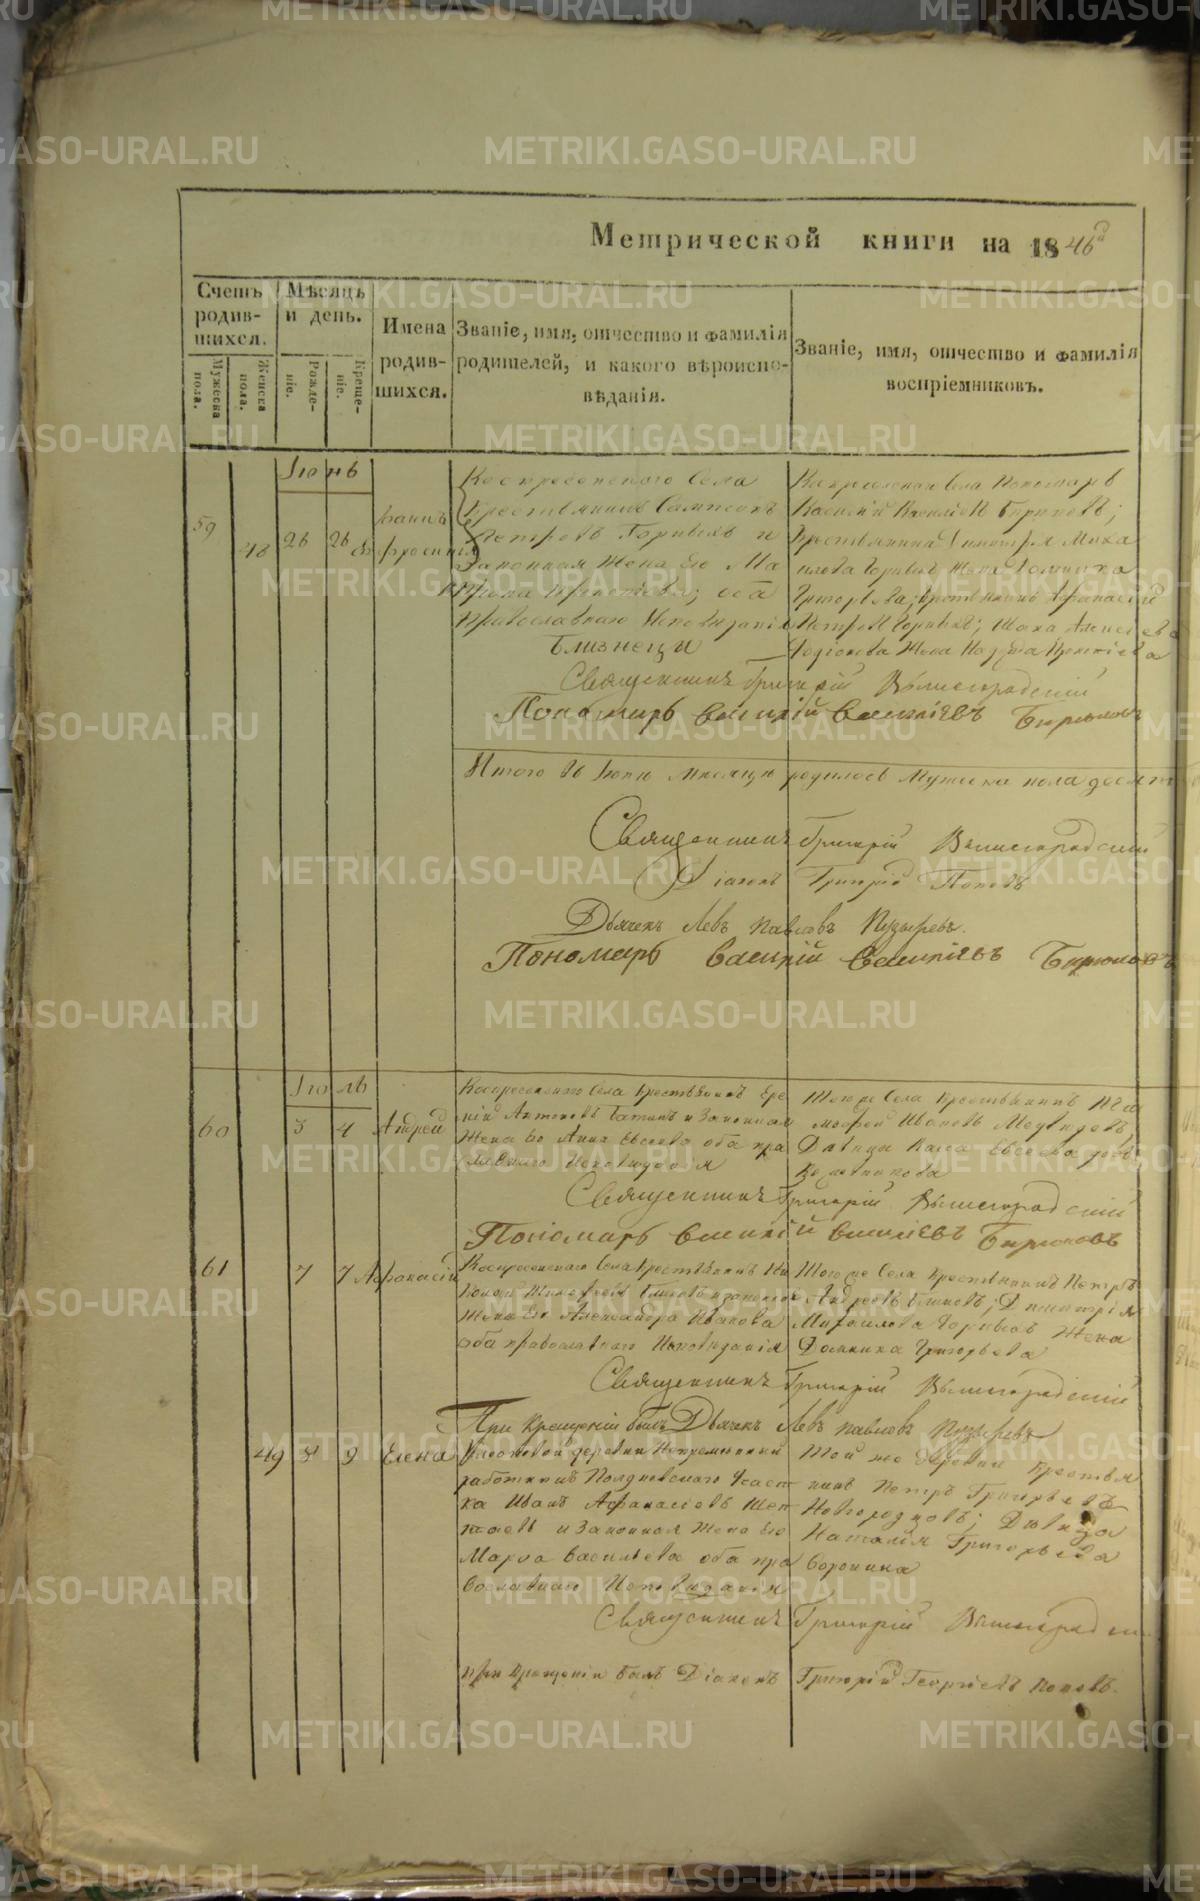 Метрической книги на 1846й
Счетъ родившихся.
Мѣсяцъ и день.
Имена родившихся.
Званіе, имя, отчество и фамилія родителей, и какого вѣроисповѣданія.
Званіе, имя, отчество и фамилія воспріемниковъ.
Мужеска пола.
Женска пола.
Рожденіе.
Крещеніе.
Іюнь
59
48
26
26
Іоаннъ
Ефросинія
Воскресенскаго Села
Крестьянинъ Сампсонъ
Петровъ Горныхъ и
Законная Жена Его
оба
Православнаго Исповѣданія
Близнецы
Воскресенскаго Села Пономарь
Василій Василіевъ Бирюковъ;
Крестьянина Димитрія Миха
илова Горныхъ Жена Домника
Григорьева; крестьянинъ Афанасій
Петровъ Горныхъ;
Жена
Священникъ Григорій Вышегородскій
Пономарь Василій Василіевъ Бирюковъ
Итого въ Іюнѣ Мѣсяцѣ родилось Мужеска пола
Священникъ Григорій Вышегородскій
Діаконъ Григорій Поповъ
Дьячекъ Левъ Павловъ Пузыревъ.
Пономарь Василій Василіевъ Бирюковъ
Іюль
60
3
4
Андрей
Воскресенскаго Села Крестьянинъ
Антоновъ и Законная
Жена Его Анна Евсеева оба пра
Исповѣданія
Того же Села Крестьянинъ
Ивановъ Медвѣдевъ,
Дѣвица Евсеева
Священникъ Григорій Вышегородскій
Пономарь Василій Василіевъ Бирюковъ
61
7
7
Афанасій
Воскресенскаго Села Крестьянинъ
Тимофеевъ Блиновъ и законная
Жена Его Александра Иванова
оба православнаго Исповѣданія
Того же Села Крестьянинъ Петръ
Андреевъ Блиновъ; Димитрія
Михаилова Горныхъ Жена
Домника Григорьева
Священникъ Григорій Вышегородскій
При Крещеніи былъ Дьячекъ Левъ Павловъ Пузыревъ
49
8
9
Елена
деревни Непремѣнный
работникъ Полдневскаго Участ
ка Иванъ Афанасіевъ
и Законная Жена Его
Марѳа Васильева оба пра
вославнаго Исповѣданія
Той же деревни Крестья
нинъ Петръ Григорьевъ
Новгородцовъ; Дѣвица
Наталія Григорьева
Воронина
Священникъ Григорій Вышегородскій
при Крещеніи былъ Діаконъ Григорій Георгіевъ Поповъ.
METRIKI.GASO-URAL.RU